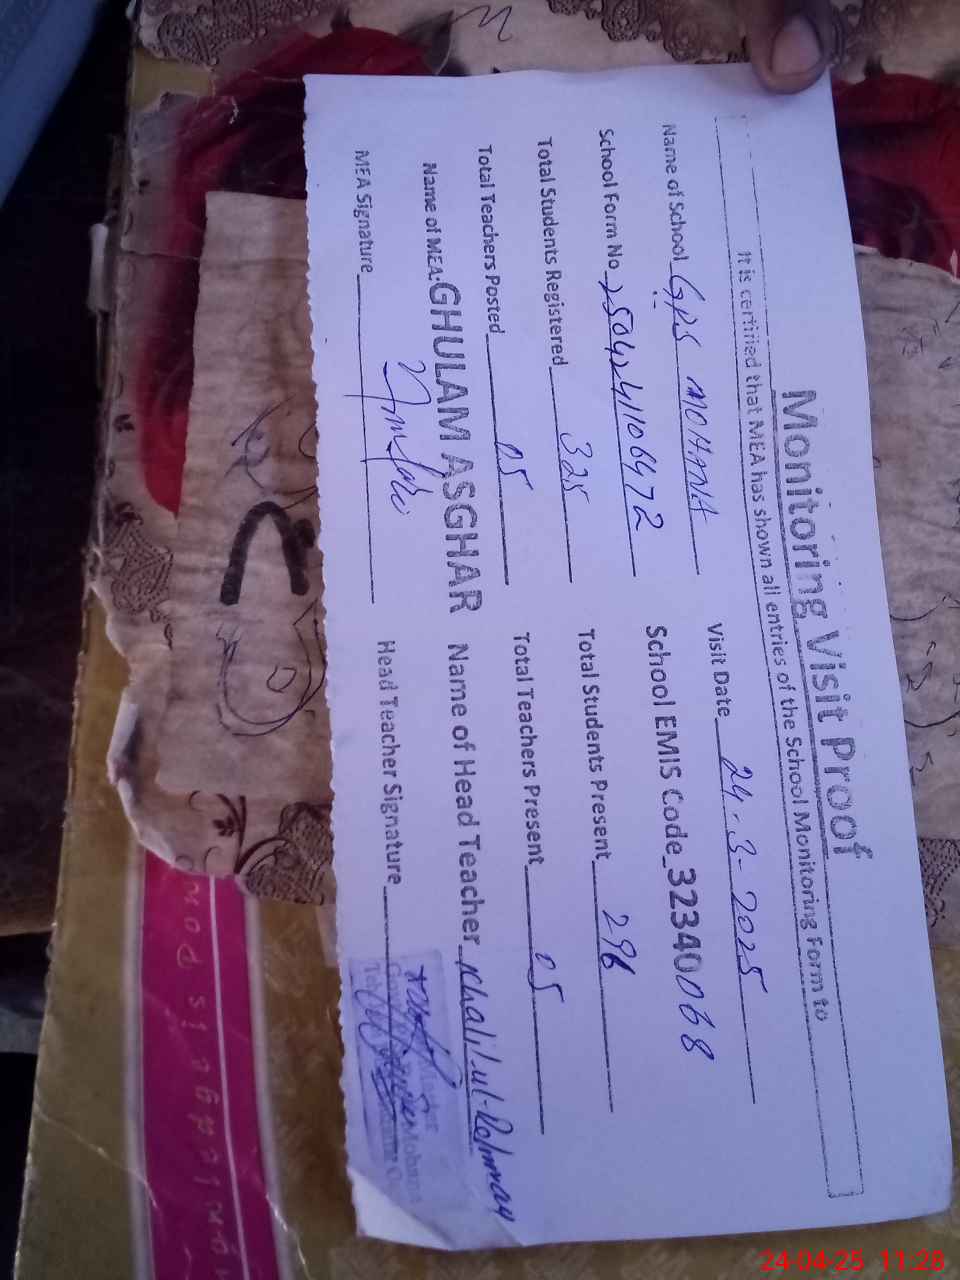 Monitoring Visit Proof
It is certified that MEA has shown all entries of the School Monitoring Form to
Name of School GPS MOHANA Visit Date 24-3-2025
School Form No 2504241106472 School EMIS Code 32340068
Total Students Registered 325 Total Students Present 296
Total Teachers Posted 05 Total Teachers Present 05
Name of MEA: GHULAM ASGHAR Name of Head Teacher Khalil-ul-Rehman
MEA Signature Head Teacher Signature
24-04-25 11:28